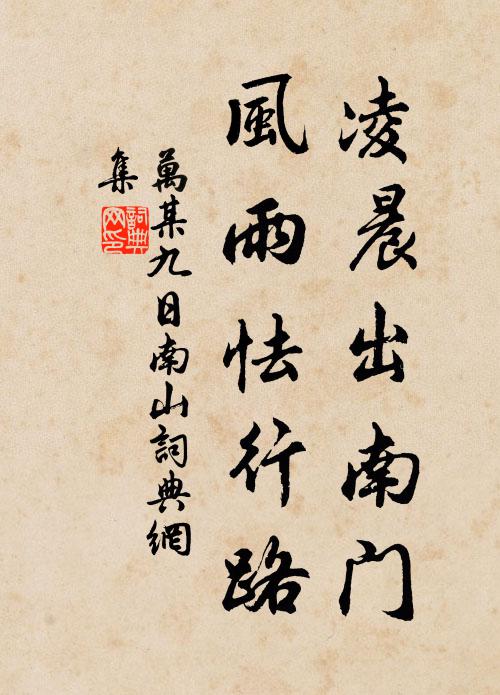 凌晨出南门
風雨怯行路
萬某九日南山詞典網
集
詞典
网印